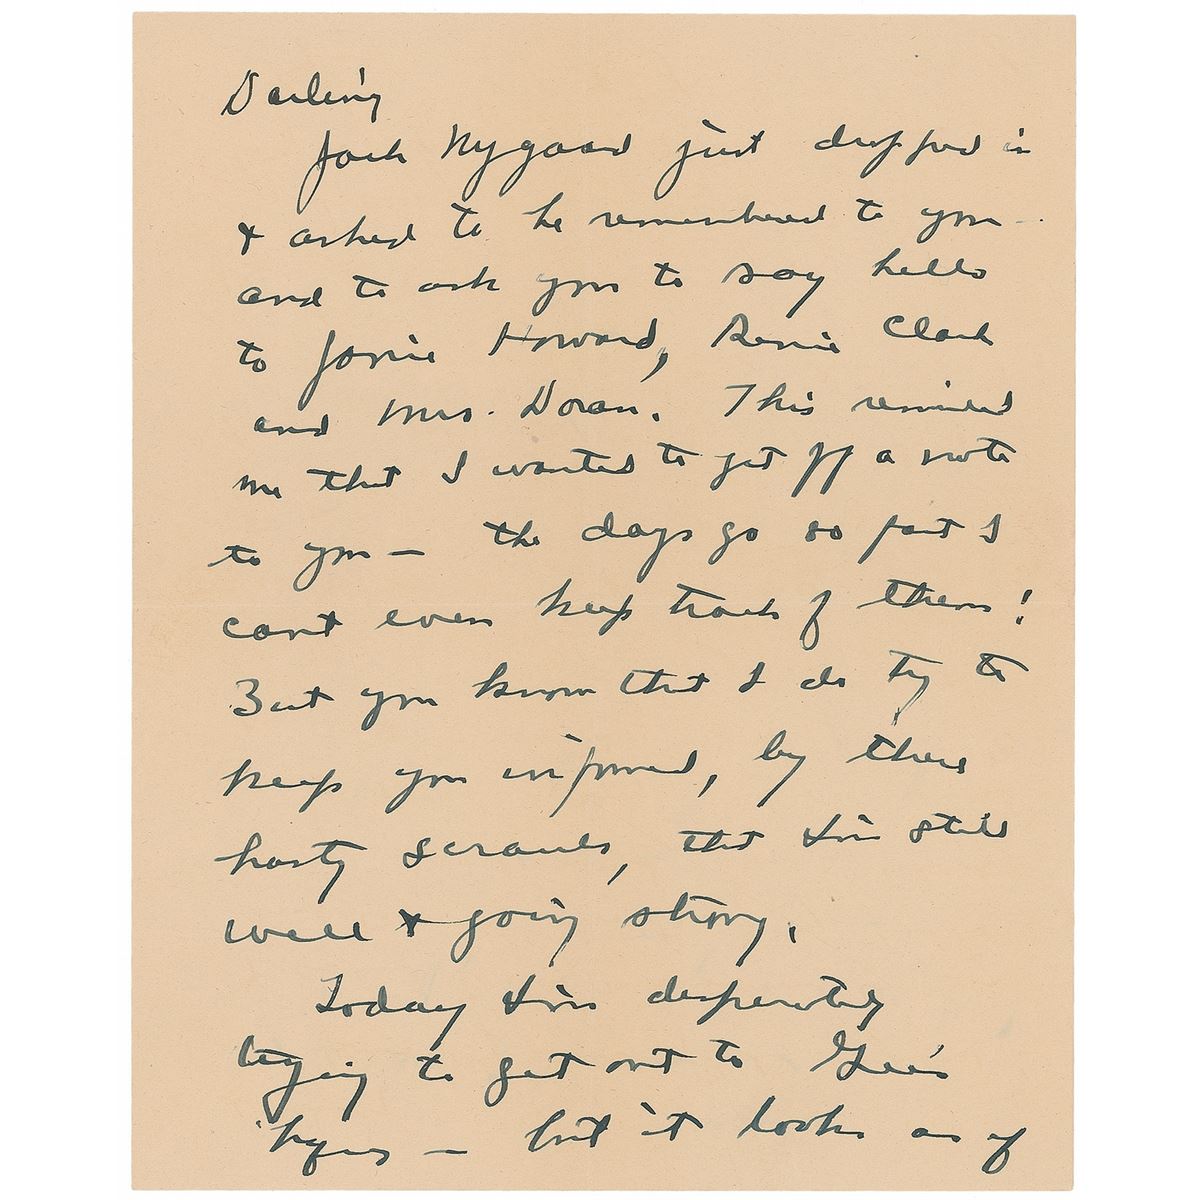 Darling
Jack Nygaard just dropped in
& asked to be remembered to you -
and to ask you to say hello
to Janie Howard, Renie Clark
and Mrs. Doran. This reminded
me that I wanted to get off a note
to you — the days go so fast I
can't even keep track of them!
But you know that I do try to
keep you informed, by these
hasty scrawls, that I'm still
well & going strong.
Today I'm desperately
trying to get out to
before — but it looks as if